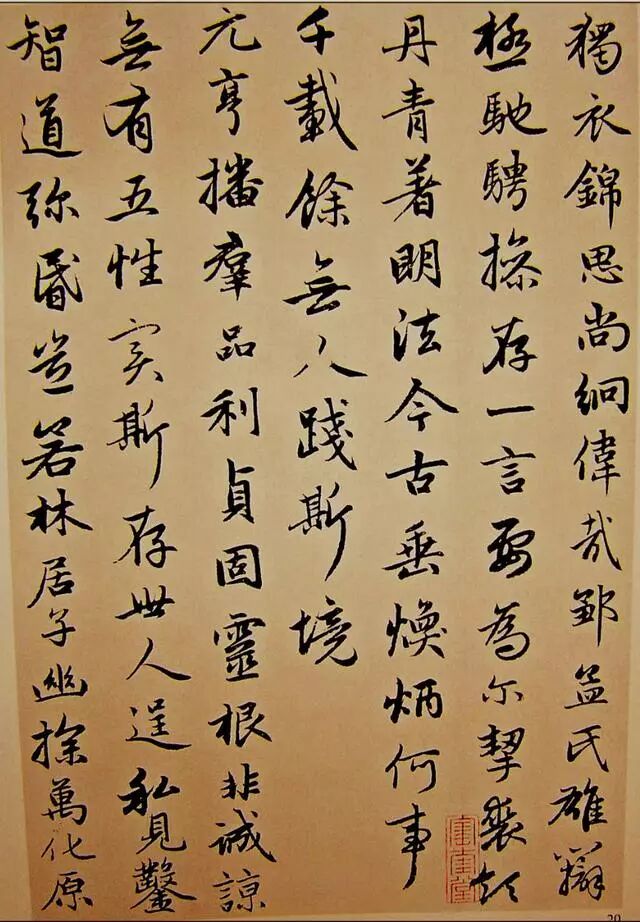 獨衣錦思尚絅偉哉鄒孟氏雄辯
極馳騁操存一言要為尔挈裘領
丹青著明法今古垂煥炳何事
千載餘無人踐斯境
元亨播羣品利貞固靈根非誠諒
無有五性實斯存世人逞私見鑿
智道弥昬豈若林居子幽探萬化原
20